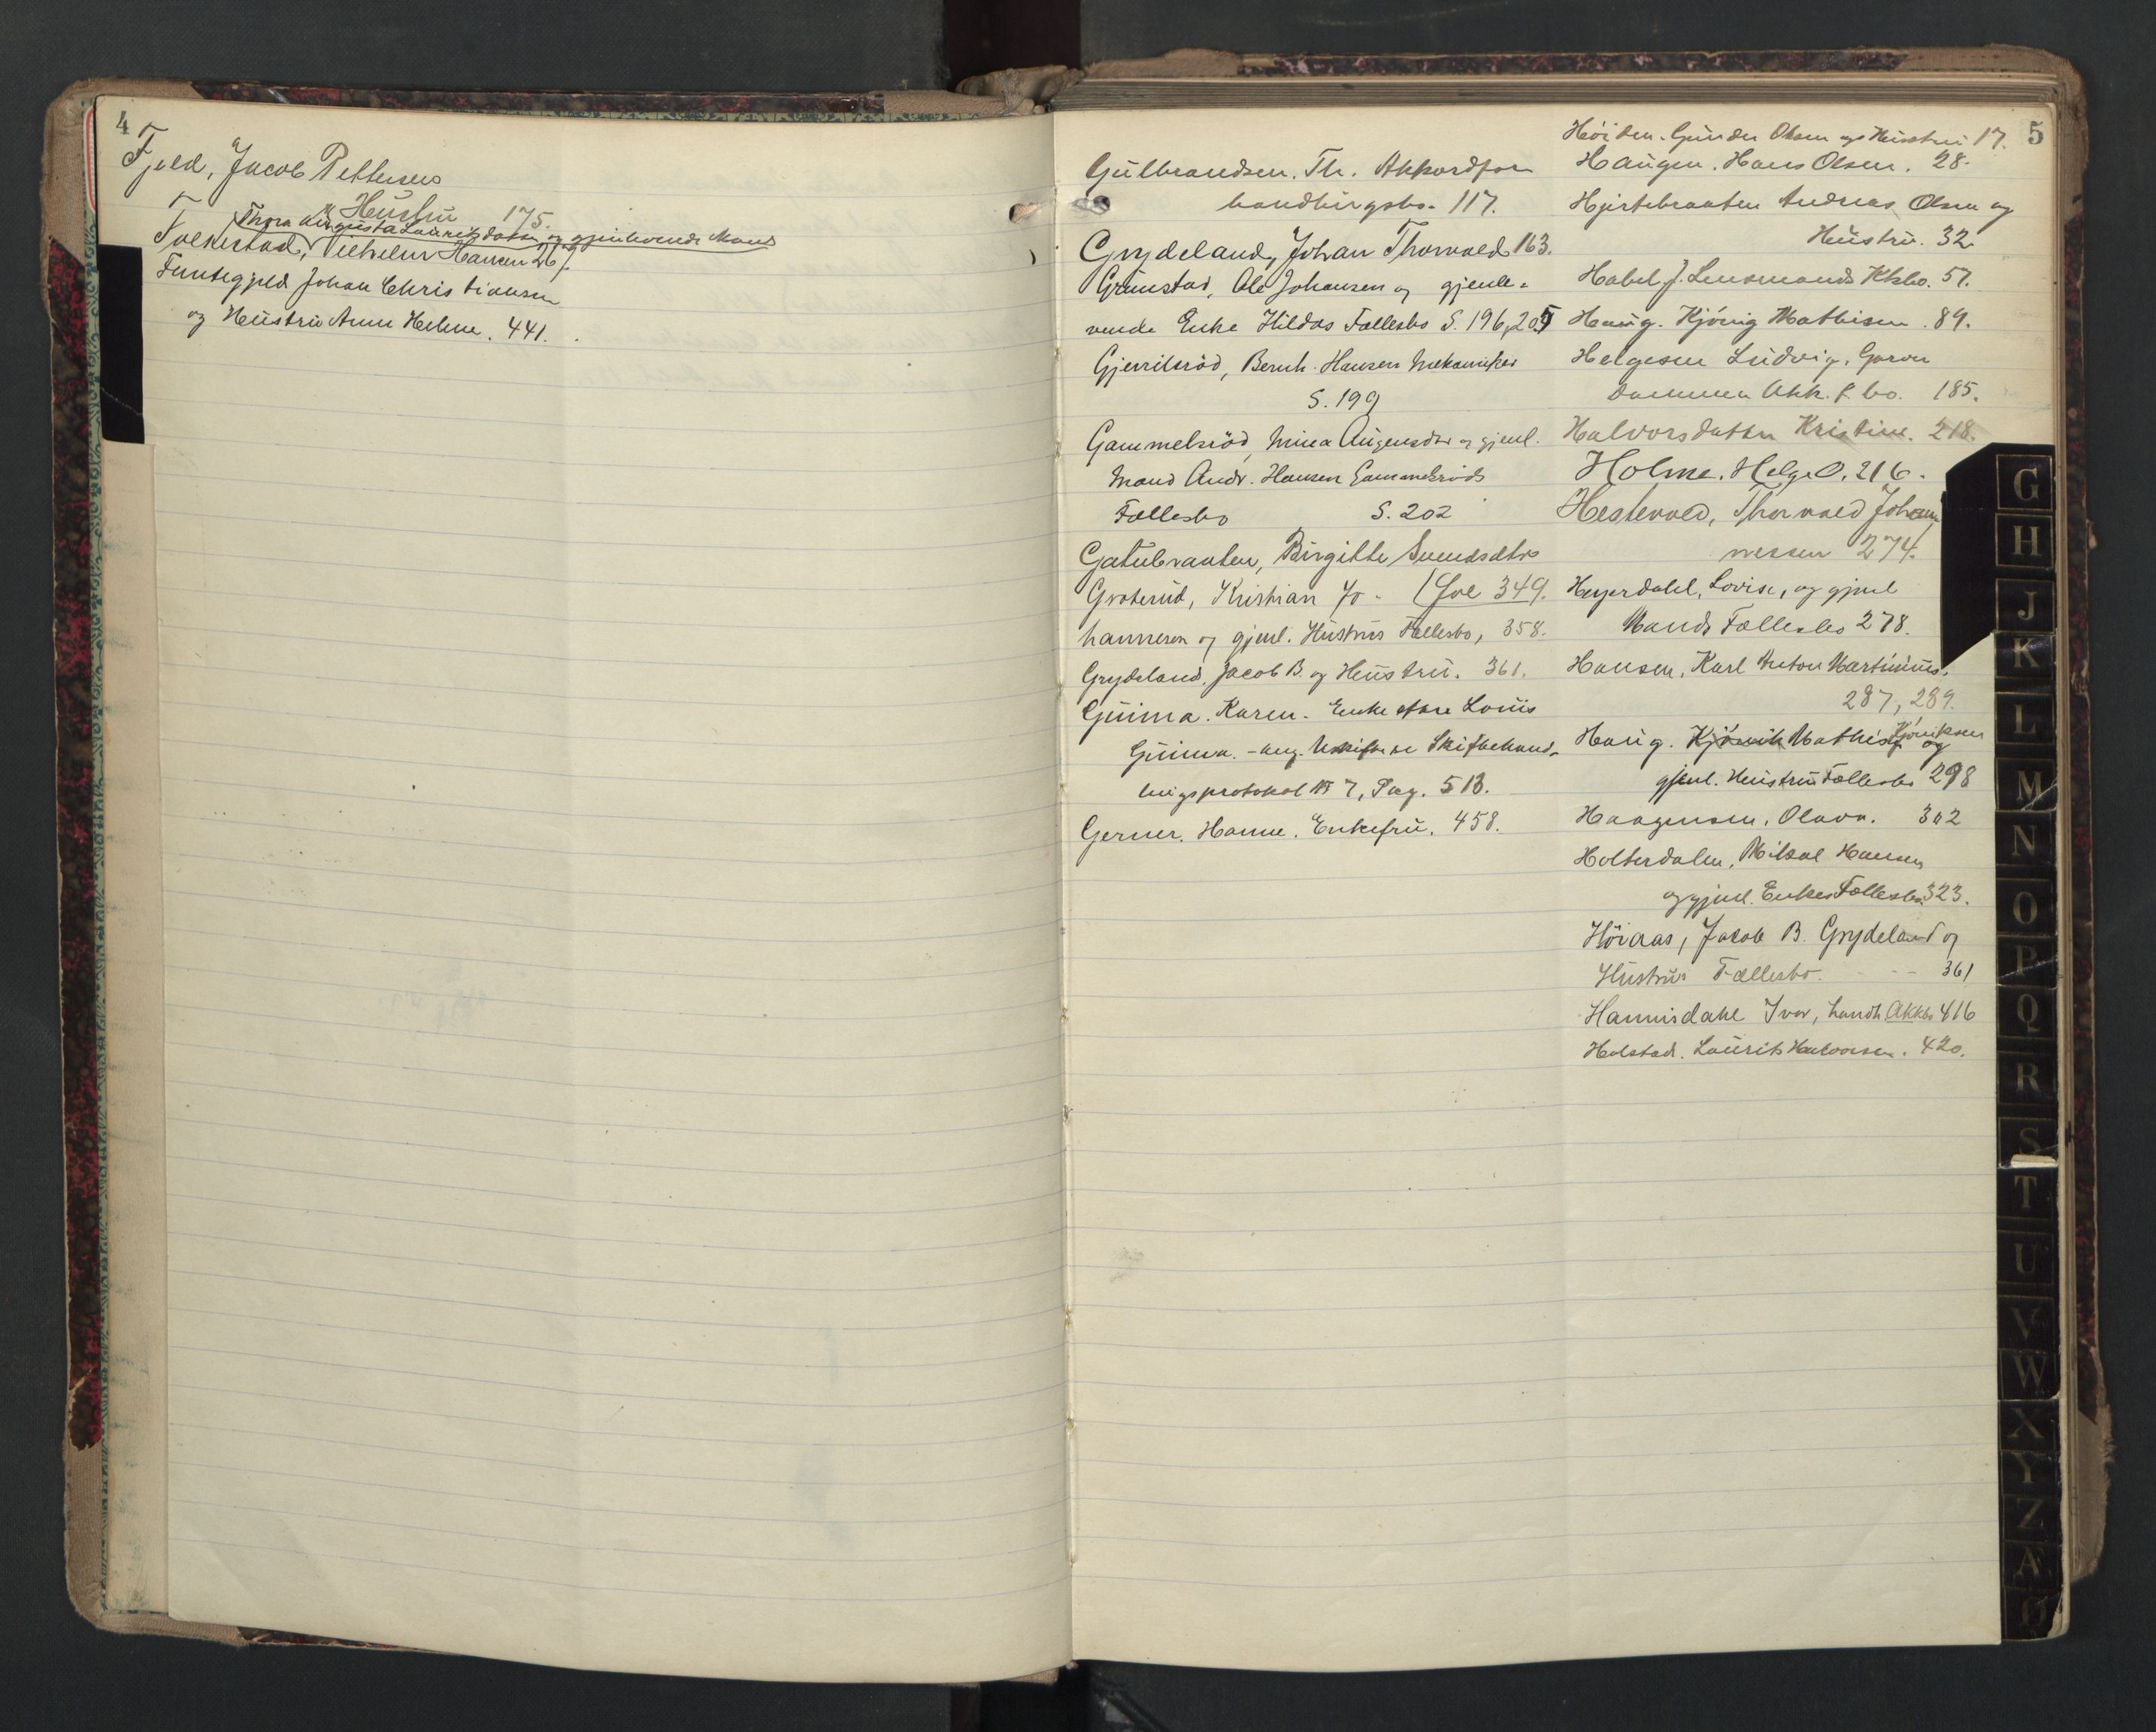 4
Fjeld, Jacob Pettersens
& Hustru 175.
Thora Augusta Lauritsdatter og gjenlevende Mand
Folkestad, Vilhelm Hansen 267.
Funtegjeld Johan Christiansen
og Hustru Anne Helene. 441.
5
Gulbrandsen. Th. Akkordfor
handlingsbo. 117.
Grydeland, Johan Thorvald 163.
Grimstad, Ole Johansen og gjenle-
vende Enke Hildas Fællesbo S. 196, 205
Gjervilsröd, Bernh. Hansen Mekaniker
S. 199
Gammelsröd, Mina Augensdtr og gjenl.
Mand Andr. Hansen Gammelsröds
Fællesbo S. 202
Gatubraaten, Birgitte Svendsdtr
Groterud, Kristian Jo- (fol 349.
hannesen og gjenl. Hustrus Fællesbo, 358.
Grydeland, Jacob B. og Hustru. 361.
Guima. Karen. Enke efter Louis
Guima. - ang. Uskifte se Skiftebehand-
lingsprotokol № 7, Pag. 513.
Gerner. Hanne. Enkefru. 458.
Höiden. Gunder Olsen og Hustru 17.
Haugen. Hans Olsen. 28.
Hjertebraaten Andreas Olsen og
Hustru. 32.
Habel J. Lensmands Kkbo. 57.
Haug. Kjönig Mathisen. 89.
Helgesen Ludvig, Garver
Dammen Akk. f. bo. 185.
Halvorsdatter Kristine. 218.
Holme. Helge O. 216.
Hestevold, Thorvald Johan
nessen 274.
Heyerdahl, Lovise, og gjenl
Mands Fællesbo 278.
Hansen, Karl Anton Martinius.
287, 289.
Haug. Kjönik Mathis Kjöniksen og
gjenl. Hustrus Fællesbo 298
Haagensen, Olava. 302
Holterdalen, Mikal Hansen
og gjenl. Enkes Fællesbo. 323.
Höiaas, Jacob B. Grydeland og
Hustrus Fællesbo. - - - 361
Hannisdahl Ivar, Landh. Akkbo 416
Holstad. Laurits Halvorsen. 420.
G
H
J
K
L
M
N
O
P
Q
R
S
T
U
V
W
X
Y
Z
Æ
Ø